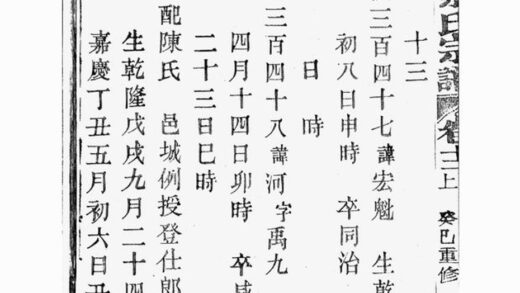 氏宗譜 卷十二上 癸巳重修
十三
三百四十七 諱宏魁 生乾
初八日申時 卒同治
日 時
三百四十八 諱河 字禹九
四月十四日卯時 卒咸
二十三日巳時
配陳氏 邑城例授登仕郎
生乾隆戊戌九月二十四
嘉慶丁丑五月初六日丑